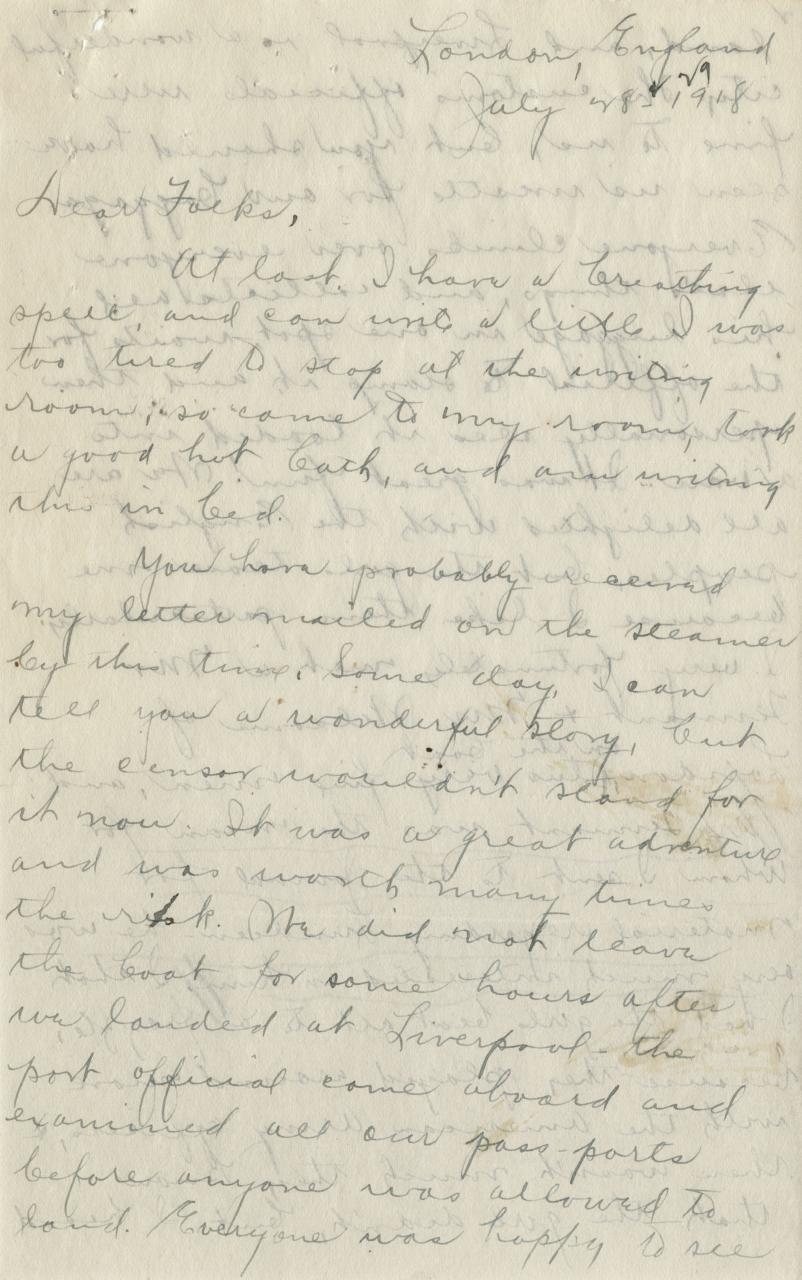 London, England
July 28- 1918
Dear Folks,
At last I have a breathing
spell, and can write a little I was
too tired to stop at the writing
room; so came to my room, took
a good hot bath, and am writing
this in bed.
You have probably received
my letter mailed on the steamer
by this time. Some day, I can
tell you a wonderful story, but
the censor wouldn't stand for
it now. It was a great adventure
and was worth many times
the risk. We did not leave
the boat for some hours after
we landed at Liverpool - the
port official came aboard and
examined all our pass-ports
before anyone was allowed to
land. Everyone was happy to see